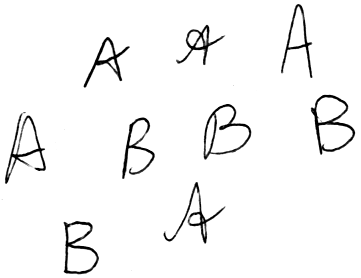 A A A
A B B B
B A